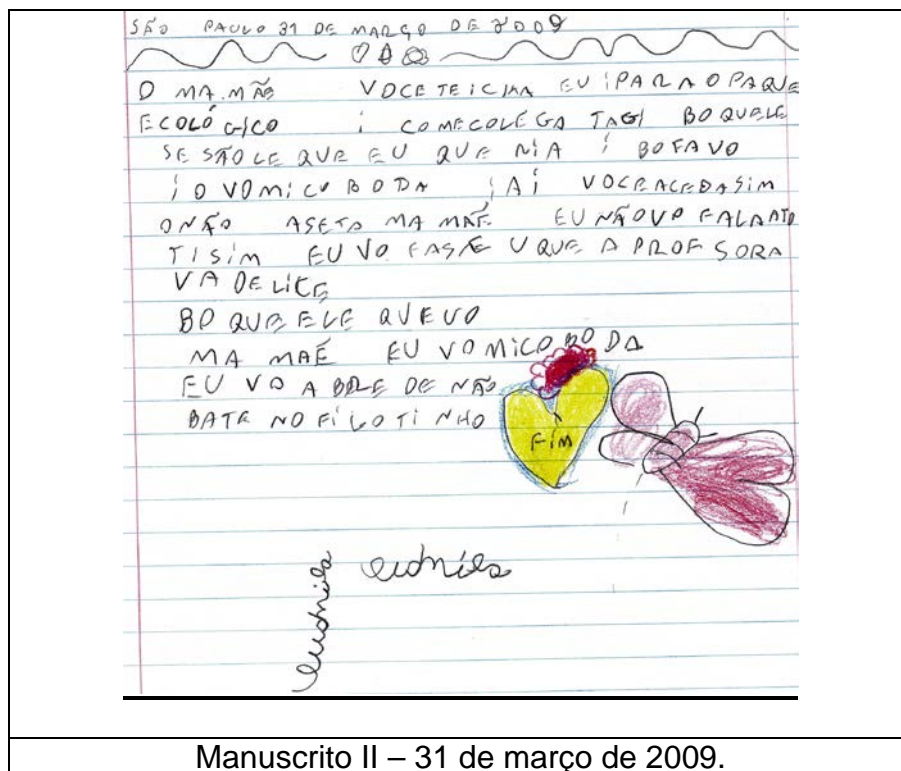 SÃO PAULO 31 DE MARÇO DE 2009
O MA.MÃE VOCE TEICIMA EU IPARA O PAQUE
ECOLÓGICO I COMECOLÉGA TAGI BOQUELE
SE SÃOLE QUE EU QUE NIA I BOFAVO
I O VOMICO BODA IAÍ VOCEACEDASIM
ONÃO ASETA MA MÃE EU NÃOVO FALANTO
TISIM EU VO FASE UQUE A PROFSORA
VA DELICE
BO QUE ELE QUEVO
MA MAÉ EU VOMICO BODA
EU VO A BRLE DE NÃO
BATE NO FILOTINHO
FIM
Manuscrito II – 31 de março de 2009.